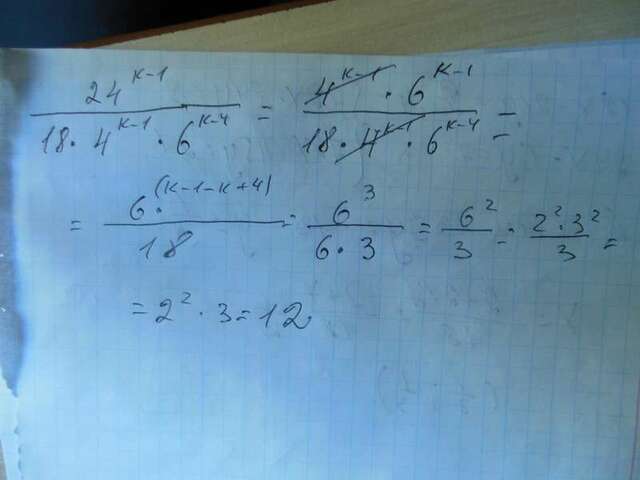 24^{k-1} / (18 · 4^{k-1} · 6^{k-4}) = 4^{k-1} · 6^{k-1} / (18 · 4^{k-1} · 6^{k-4}) =
= 6^{(k-1-k+4)} / 18 = 6^3 / (6 · 3) = 6^2 / 3 = 2^2 · 3^2 / 3 =
= 2^2 · 3 = 12